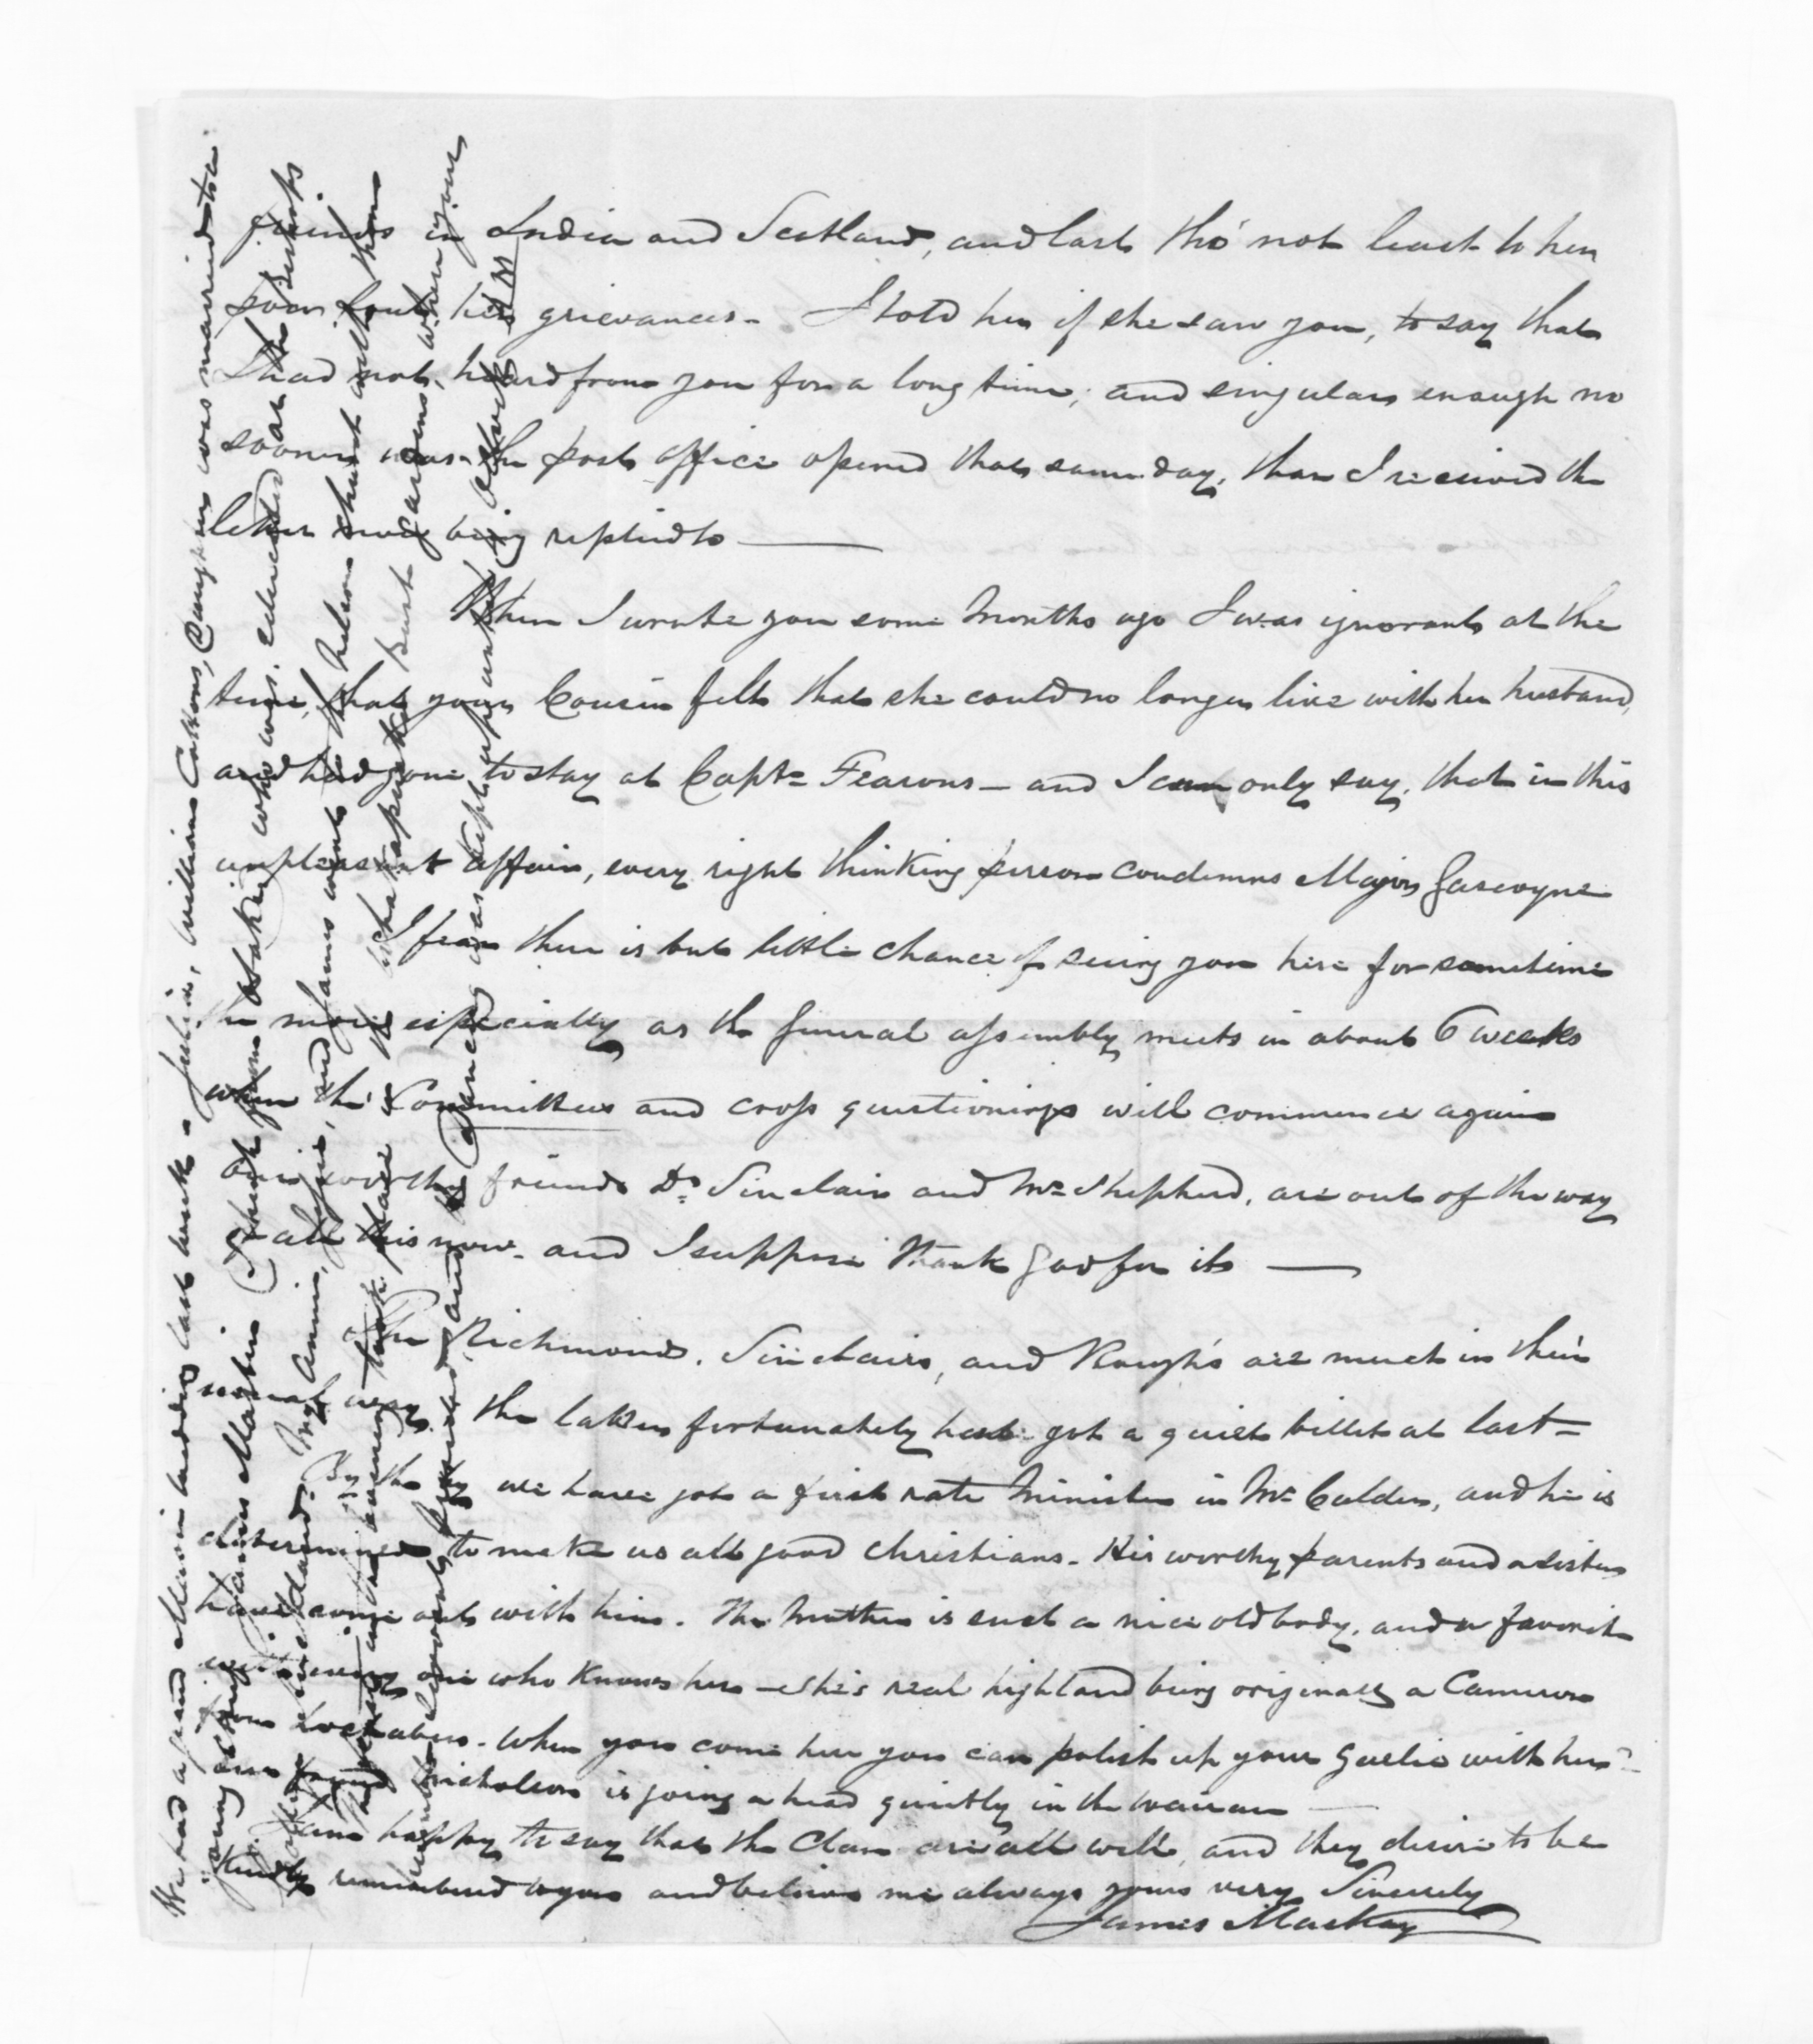 friends in India and Scotland, and last tho' not least to hen
poor soul, her grievances - I told her if she saw you, to say that
I had not heard from you for a long time, and singular enough no
sooner was the post office opened that same day, than I received the
letter now being replied to —
When I wrote you some months ago I was ignorant at the
time, that your Cousin felt that she could no longer live with her husband,
and had gone to stay at Captn Fearons - and I can only say, that in this
unpleasant affair, every right thinking person condemns Major Gascoyne
I fear there is but little chance of seeing you here for sometime
the more especially as the General assembly meets in about 6 weeks
when the Committees and cross questionings will commence again
our worthy friends Dr Sinclair and Mr Shepherd, are out of the way
of all this now - and I suppose thank God for it —
The Richmonds, Sinclairs, and Rough's are much in their
usual way, the latter fortunately have got a quiet billet at last -
By the by we have got a first rate Minister in Mr Calder, and he is
determined to make us all good christians - His worthy parents and a sister
have come out with him. The Mother is such a nice old body, and a favorite
with every one who knows her - she's real highland being originally a Cameron
from Lochaber - When you come here you can polish up your Gaelic with her -
our friend Nicholson is going ahead quietly in the Wairau —
I am happy to say that the Clan are all well, and they desire to be
kindly remembered to you and believe me always yours very Sincerely
James Mackay
We had a grand Maori wedding last week - Julia, William Cattons, Daughter was married to a
young Maori James Martin (I think from Otaki) who was educated at the Bishops
in Auckland. My Annie, Jessie, and James went to Nelson church with them
took place at the party. But
and Dancing was kept up until